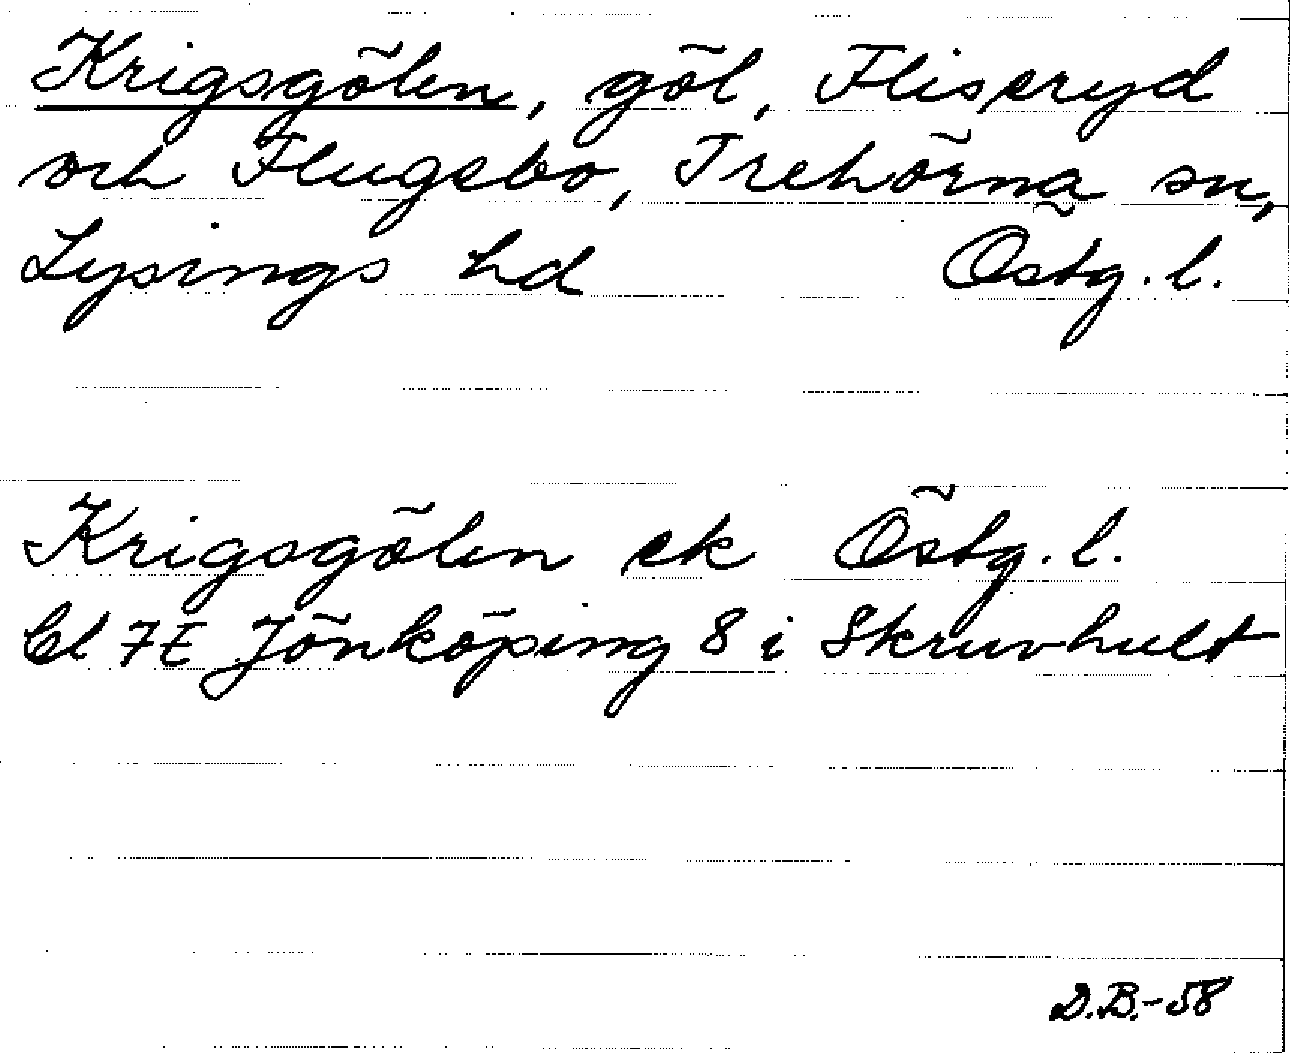 Krigsgölen, göl, Fliseryd
och Flugebo, Trehörna sn,
Lysings hd Östg. l.
Krigsgölen ek Östg. l.
bl 7E Jönköping 8 i Skruvhult
D.B.-58